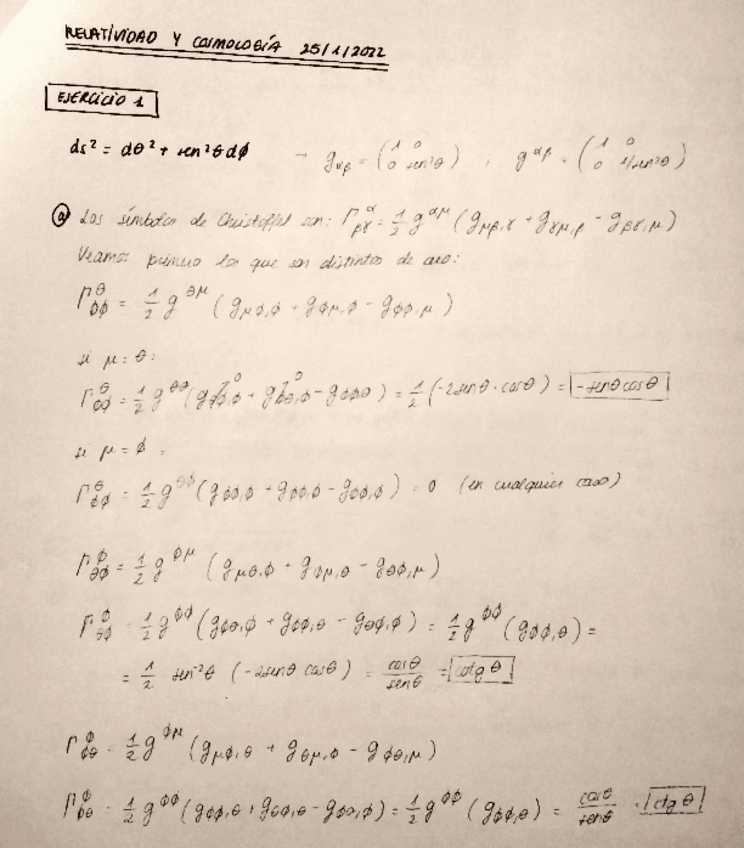 RELATIVIDAD Y COSMOLOGÍA 25/1/2022
EJERCICIO 1
ds² = dθ² + sen²θ dϕ → g_αβ = (1 0 0 sen²θ) , g^αβ = (1 0 0 1/sen²θ)
ⓐ Los símbolos de Christoffel son: Γ^α_βγ = 1/2 g^αμ (g_μβ,γ + g_γμ,β - g_βγ,μ)
Veamos primero los que son distintos de cero:
Γ^θ_ϕϕ = 1/2 g^θμ (g_μϕ,ϕ + g_ϕμ,ϕ - g_ϕϕ,μ)
si μ = θ:
Γ^θ_ϕϕ = 1/2 g^θθ (g_θϕ,ϕ 0 + g_ϕθ,ϕ 0 - g_ϕϕ,θ) = 1/2 (-2senθ · cosθ) = -senθcosθ
si μ = ϕ =
Γ^θ_ϕϕ = 1/2 g^θϕ (g_ϕϕ,ϕ + g_ϕϕ,ϕ - g_ϕϕ,ϕ) = 0 (en cualquier caso)
Γ^ϕ_θϕ = 1/2 g^ϕμ (g_μθ,ϕ + g_ϕμ,θ - g_θϕ,μ)
Γ^ϕ_θϕ = 1/2 g^ϕϕ (g_ϕθ,ϕ + g_ϕϕ,θ - g_θϕ,ϕ) = 1/2 g^ϕϕ (g_ϕϕ,θ) =
= 1/2 sen⁻²θ (-2senθ cosθ) = cosθ/senθ = cotg θ
Γ^ϕ_ϕθ = 1/2 g^ϕμ (g_μϕ,θ + g_θμ,ϕ - g_ϕθ,μ)
Γ^ϕ_ϕθ = 1/2 g^ϕϕ (g_ϕϕ,θ + g_θϕ,ϕ - g_ϕθ,ϕ) = 1/2 g^ϕϕ (g_ϕϕ,θ) = cosθ/senθ = ctg θ